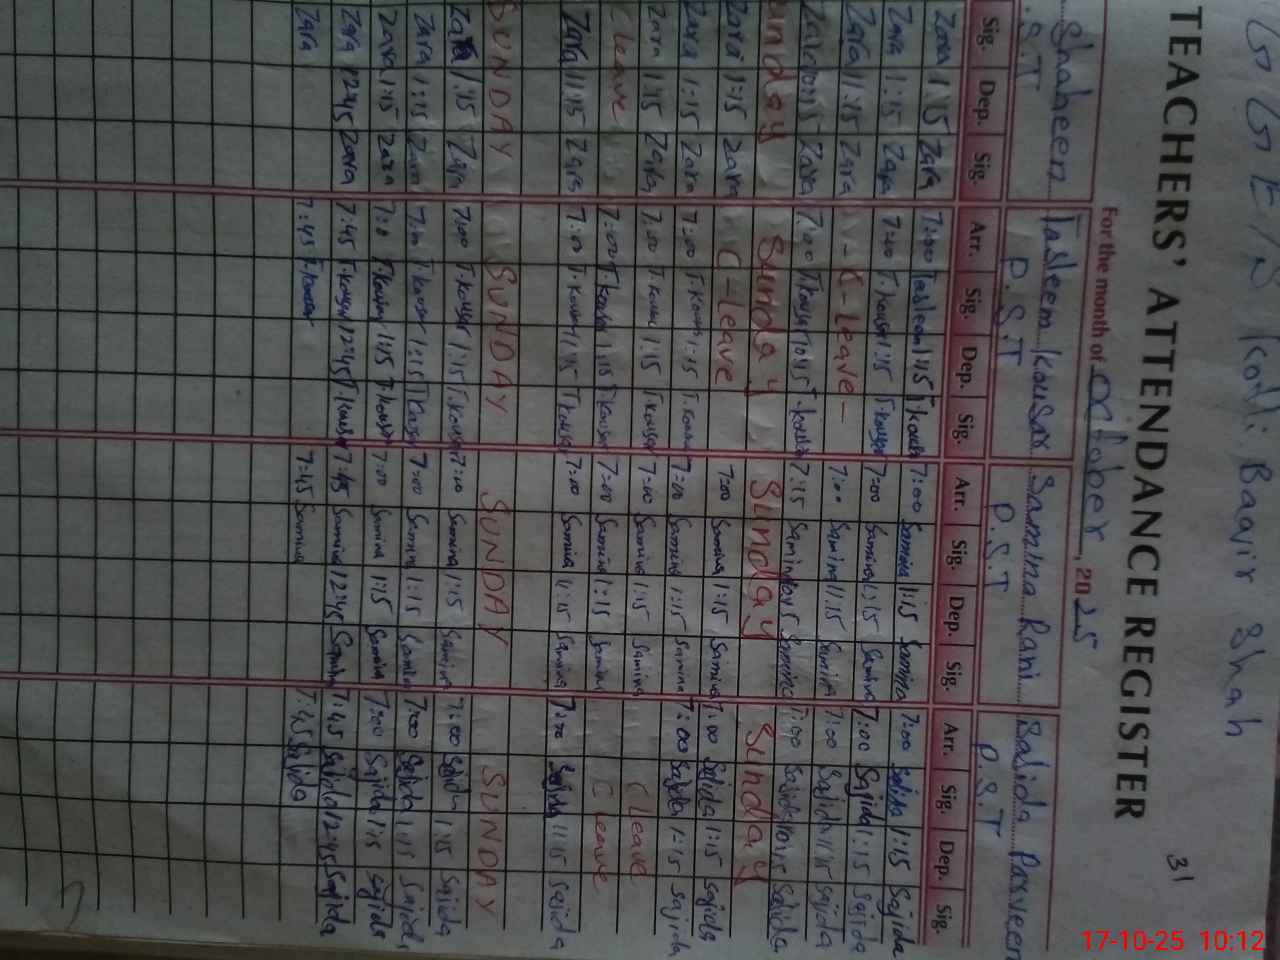 GGE/S Kotli Baavir Shah
31
TEACHERS' ATTENDANCE REGISTER
For the month of October, 2025
Shaheen Tasleem Kousar Samina Rani Sajida Parveen
S.T P.S.T P.S.T P.S.T
Sig. Dep. Sig. Arr. Sig. Dep. Sig. Arr. Sig. Dep. Sig. Arr. Sig. Dep. Sig.
Zara 1:15 Zara 7:00 Tasleem 1:15 T.Kousar 7:00 Samina 1:15 Samina 7:00 Sajida 1:15 Sajida
Zara 1:15 Zara 7:00 T.Kousar 1:15 T.Kousar 7:00 Samina 1:15 Samina 7:00 Sajida 1:15 Sajida
Zara 11:15 Zara - C-Leave - 7:00 Samina 11:15 Samina 7:00 Sajida 11:15 Sajida
Zara 10:15 Zara 7:00 T.Kousar 10:15 T.Kousar 7:15 Samina 10:15 Samina 7:00 Sajida 10:15 Sajida
Sunday Sunday Sunday Sunday
Zara 1:15 Zara C-Leave 7:00 Samina 1:15 Samina 7:00 Sajida 1:15 Sajida
Zara 1:15 Zara 7:00 T.Kousar 1:15 T.Kousar 7:00 Samina 1:15 Samina 7:00 Sajida 1:15 Sajida
Zara 1:15 Zara 7:00 T.Kousar 1:15 T.Kousar 7:00 Samina 1:15 Samina C Leave
C Leave 7:00 T.Kousar 1:15 T.Kousar 7:00 Samina 1:15 Samina C Leave
Zara 11:15 Zara 7:00 T.Kousar 11:15 T.Kousar 7:00 Samina 11:15 Samina 7:00 Sajida 11:15 Sajida
SUNDAY SUNDAY SUNDAY SUNDAY
Zara 1:15 Zara 7:00 T.Kousar 1:15 T.Kousar 7:00 Samina 1:15 Samina 7:00 Sajida 1:15 Sajida
Zara 1:15 Zara 7:00 T.Kousar 1:15 T.Kousar 7:00 Samina 1:15 Samina 7:00 Sajida 1:15 Sajida
Zara 1:15 Zara 7:0 T.Kousar 1:15 T.Kousar 7:00 Samina 1:15 Samina 7:00 Sajida 1:15 Sajida
Zara 12:45 Zara 7:45 T.Kousar 12:45 T.Kousar 7:45 Samina 12:45 Samina 7:45 Sajida 12:45 Sajida
Zara 7:45 T.Kousar 7:45 Samina 7:45 Sajida
17-10-25 10:12